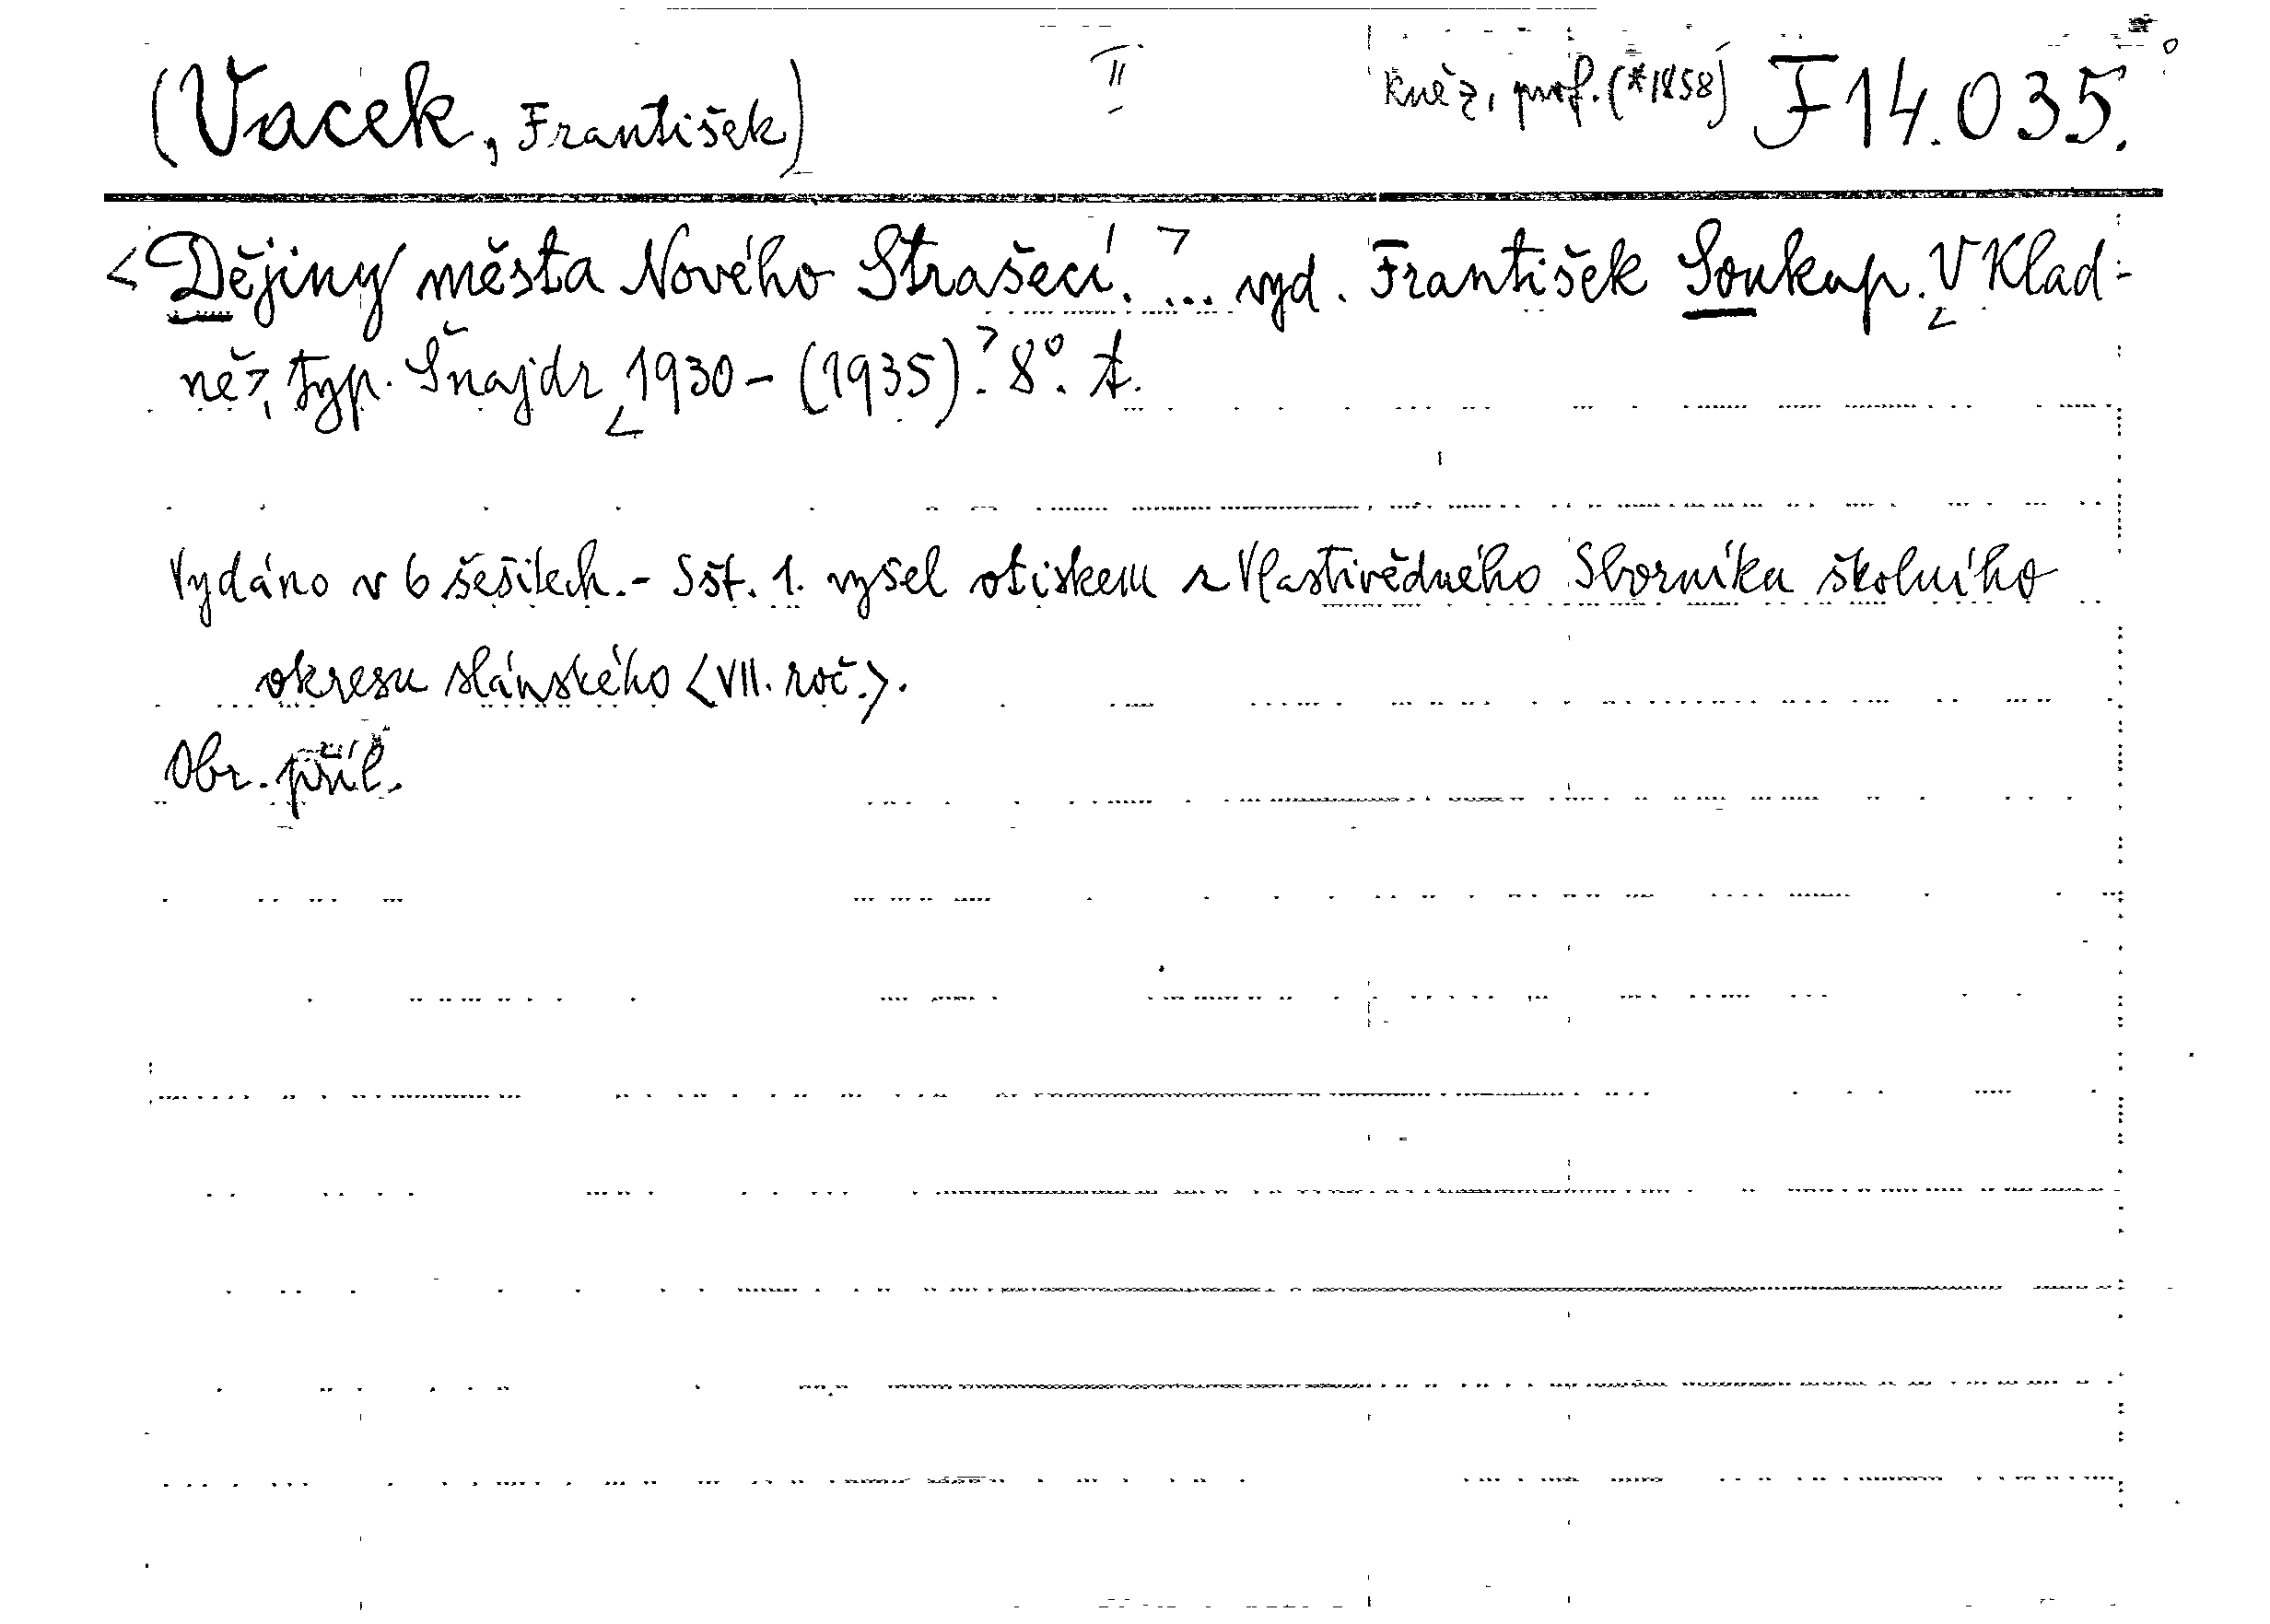 (Vacek, František) II kněz, prof. (*1858) F 14.035.
<Dějiny města Nového Strašecí.> ... vyd. František Soukup. <V Klad-
ně>, typ. Šnajdr <1930 - (1935)>. 8°. A.
Vydáno v 6 sešitech. - Sšt. 1. vyšel otiskem z Vlastivědného Sborníku školního
okresu slánského <VII. roč.>.
Obr. příl.